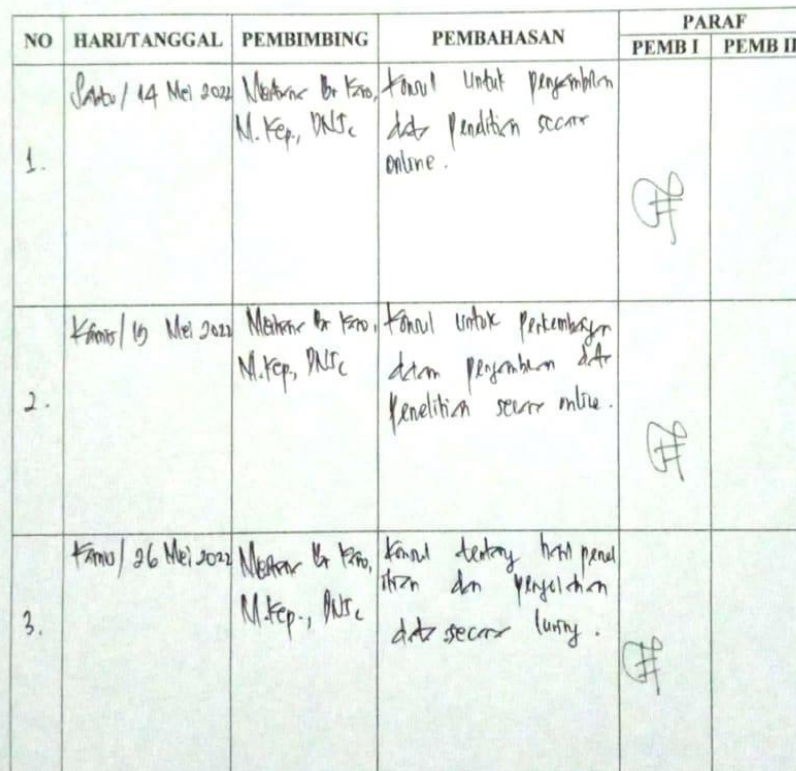 NO HARI/TANGGAL PEMBIMBING PEMBAHASAN PARAF
PEMB I PEMB II
1.
Sabtu / 14 Mei 2022
Br Karo,
M.Kep., DNSc
Konsul untuk pengambilan
data penelitian secara
online.
2.
Kamis / 19 Mei 2022
Br Karo,
M.Kep., DNSc
Konsul untuk perkembangan
dalam pengambilan data
penelitian secara online.
3.
Kamis / 26 Mei 2022
Br Karo,
M.Kep., DNSc
Konsul tentang hasil penel
itian dan pengolahan
data secara luring.